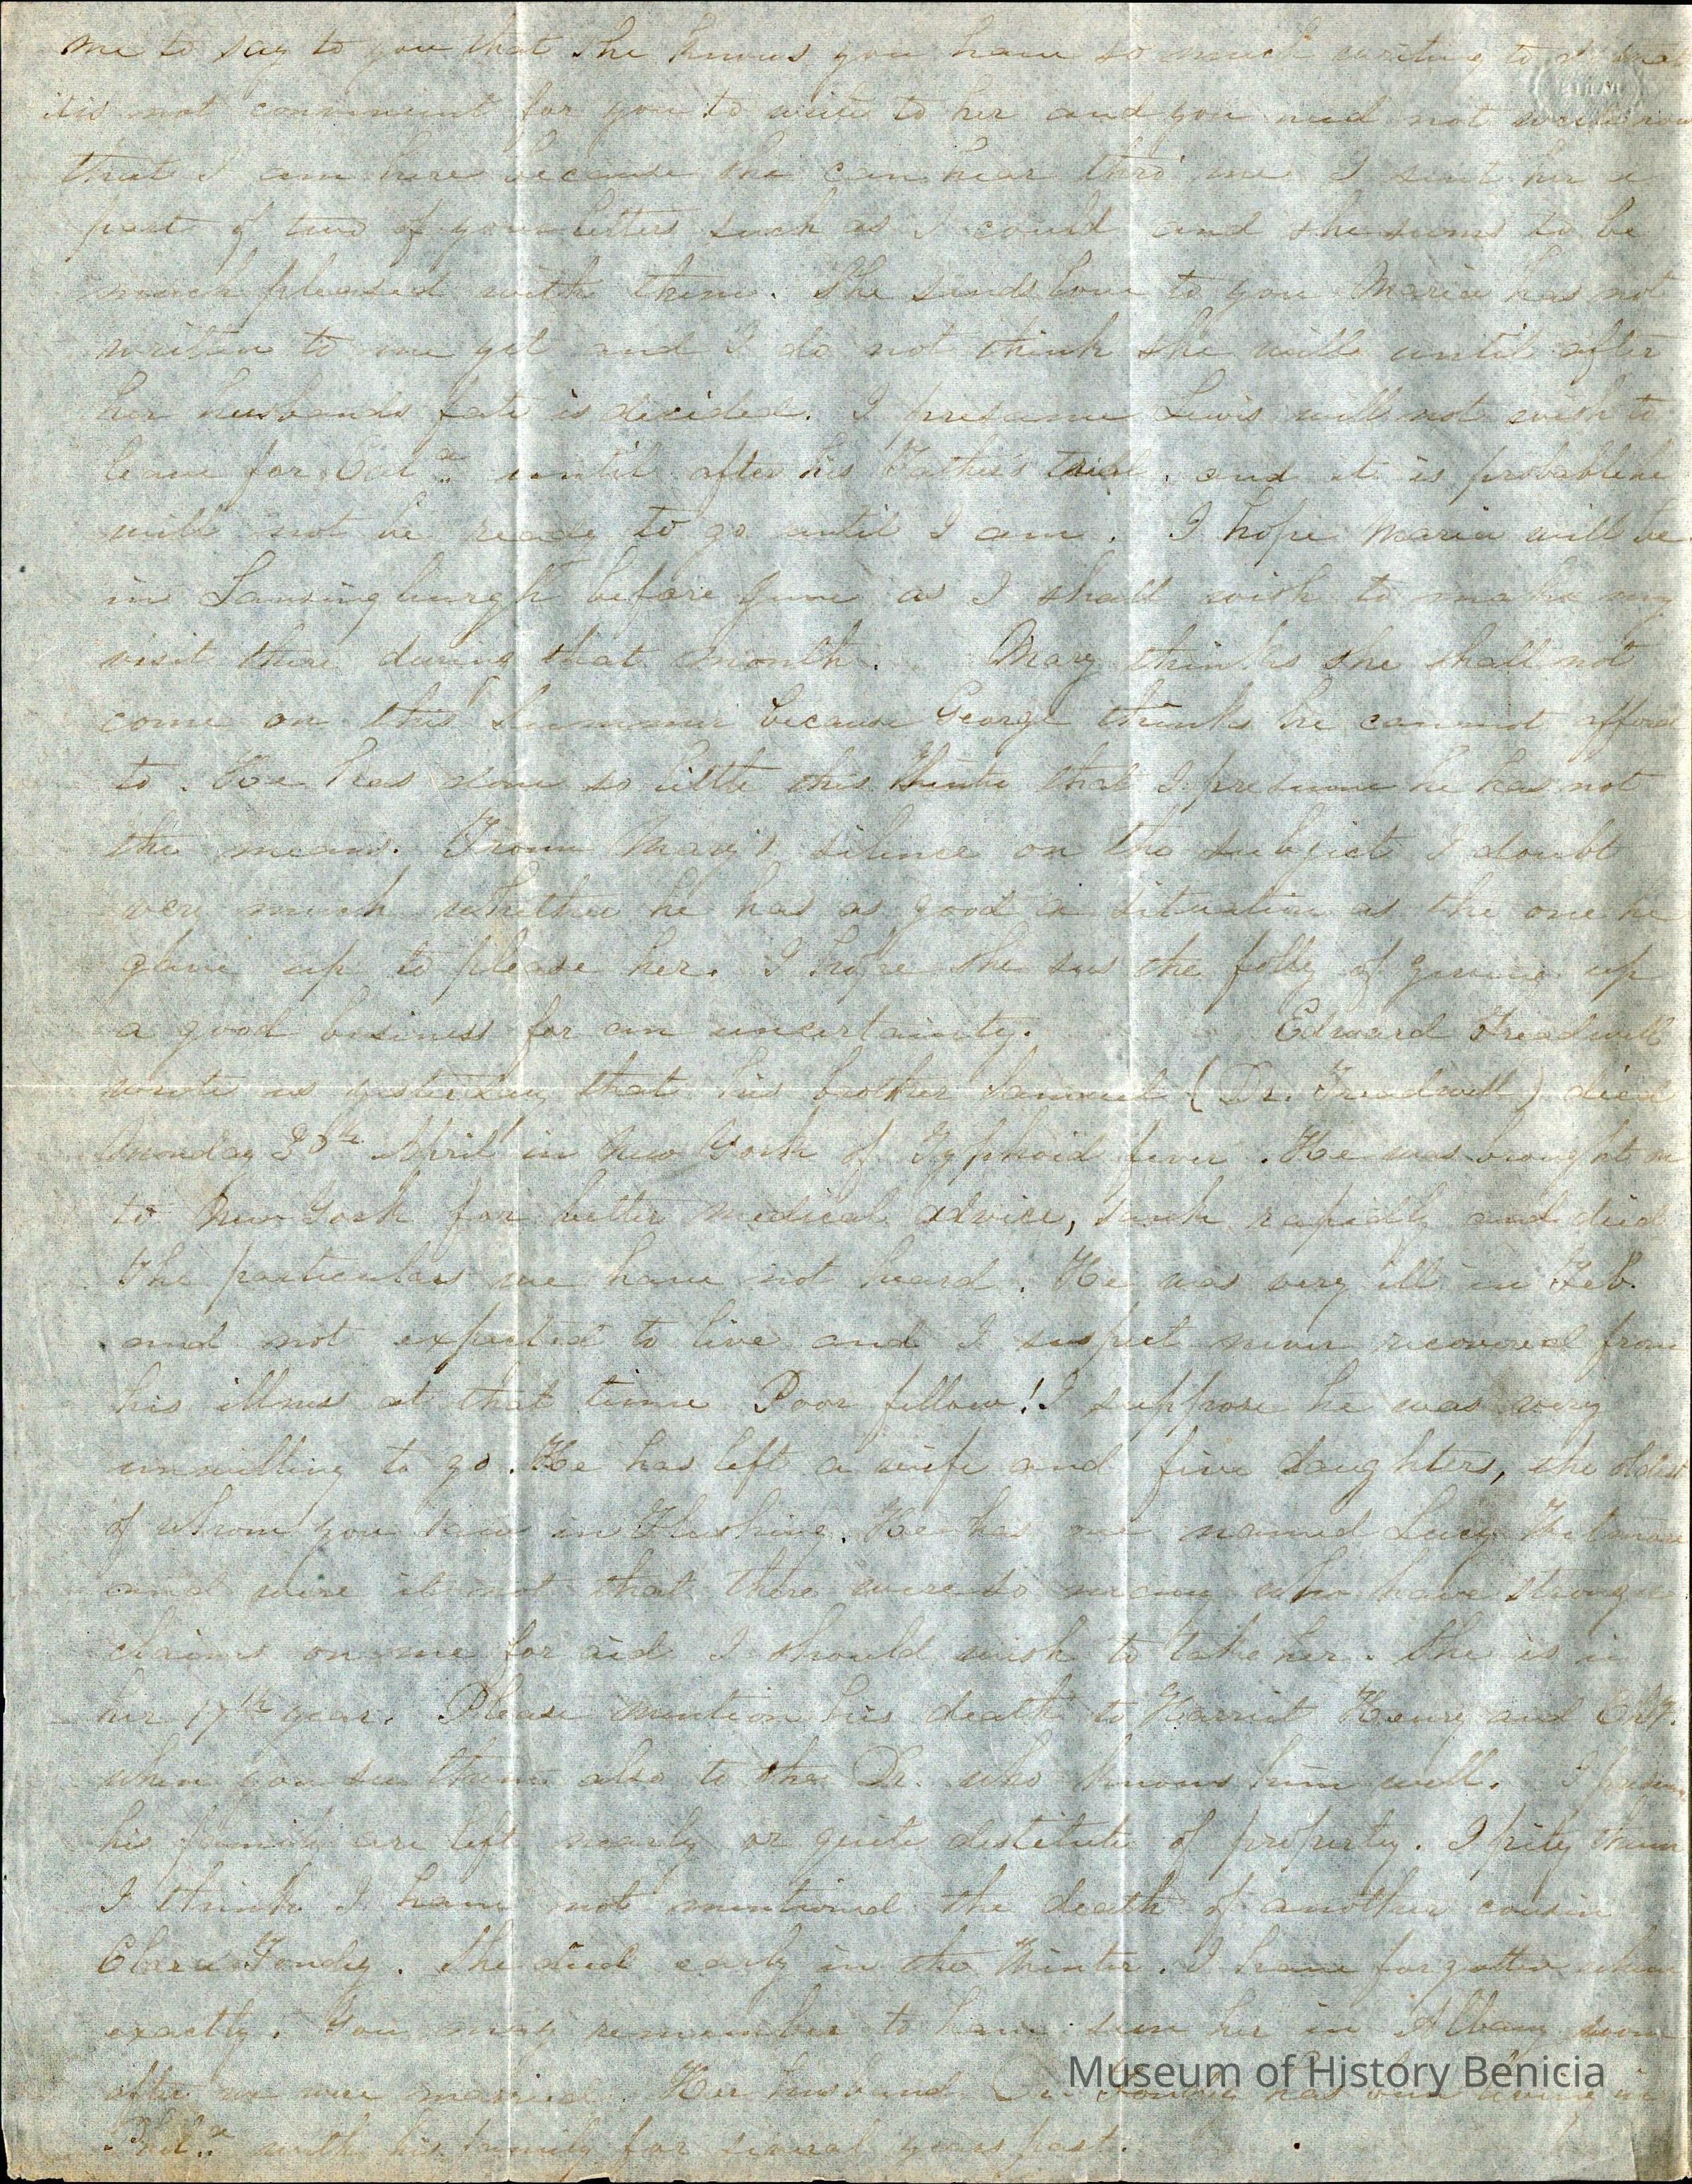 me to say to you that she knows you have so much writing to do that
it is not convenient for you to write to her and you need not write now
that I am here because she can hear thro' me I sent her a
part of two of your letters such as I could and she seems to be
much pleased with them. She sends love to you Maria has not
written to me yet and I do not think she will until after
her husbands fate is decided. I presume Lewis will not wish to
leave for Cal.a until after his Father's trial. and it is probable he
will not be ready to go until I am. I hope Maria will be
in Lansingburgh before June as I shall wish to make my
visit there during that month. Mary thinks she shall not
come on this Summer because George thinks he cannot afford
to. He has done so little this Winter that I presume he has not
the means. From Mary's silence on the subject I doubt
very much whether he has as good a situation as the one he
gave up to please her. I hope she sees the folly of giving up
a good business for an uncertainty. Edward Treadwell
wrote us yesterday that his brother Samuel (Dr. Treadwell) died
Monday 30th April in New York of Typhoid fever. He was brought on
to New York for better medical advice, sunk rapidly and died
The particulars we have not heard. He was very ill in Feb.
and not expected to live and I suspect never recovered from
his illness at that time Poor fellow! I suppose he was very
unwilling to go. He has left a wife and five daughters, the oldest
of whom you saw in Flushing. He has one named Lucy
and were it not that there were so many who have stronger
claims on me for aid I should wish to take her. She is in
her 17th year. Please mention his death to Harriet Henry and
when you see them also to the Dr. who knows him well. I presume
his family are left nearly or quite destitute of property. I pity them
I think I have not mentioned the death of another cousin
Clara. She died early in the Winter. I have forgotten when
exactly. You may remember to have seen her in Albany soon
after we were married. Her husband Dr. has been living in
Phil.a with his family for several years past.
Museum of History Benicia